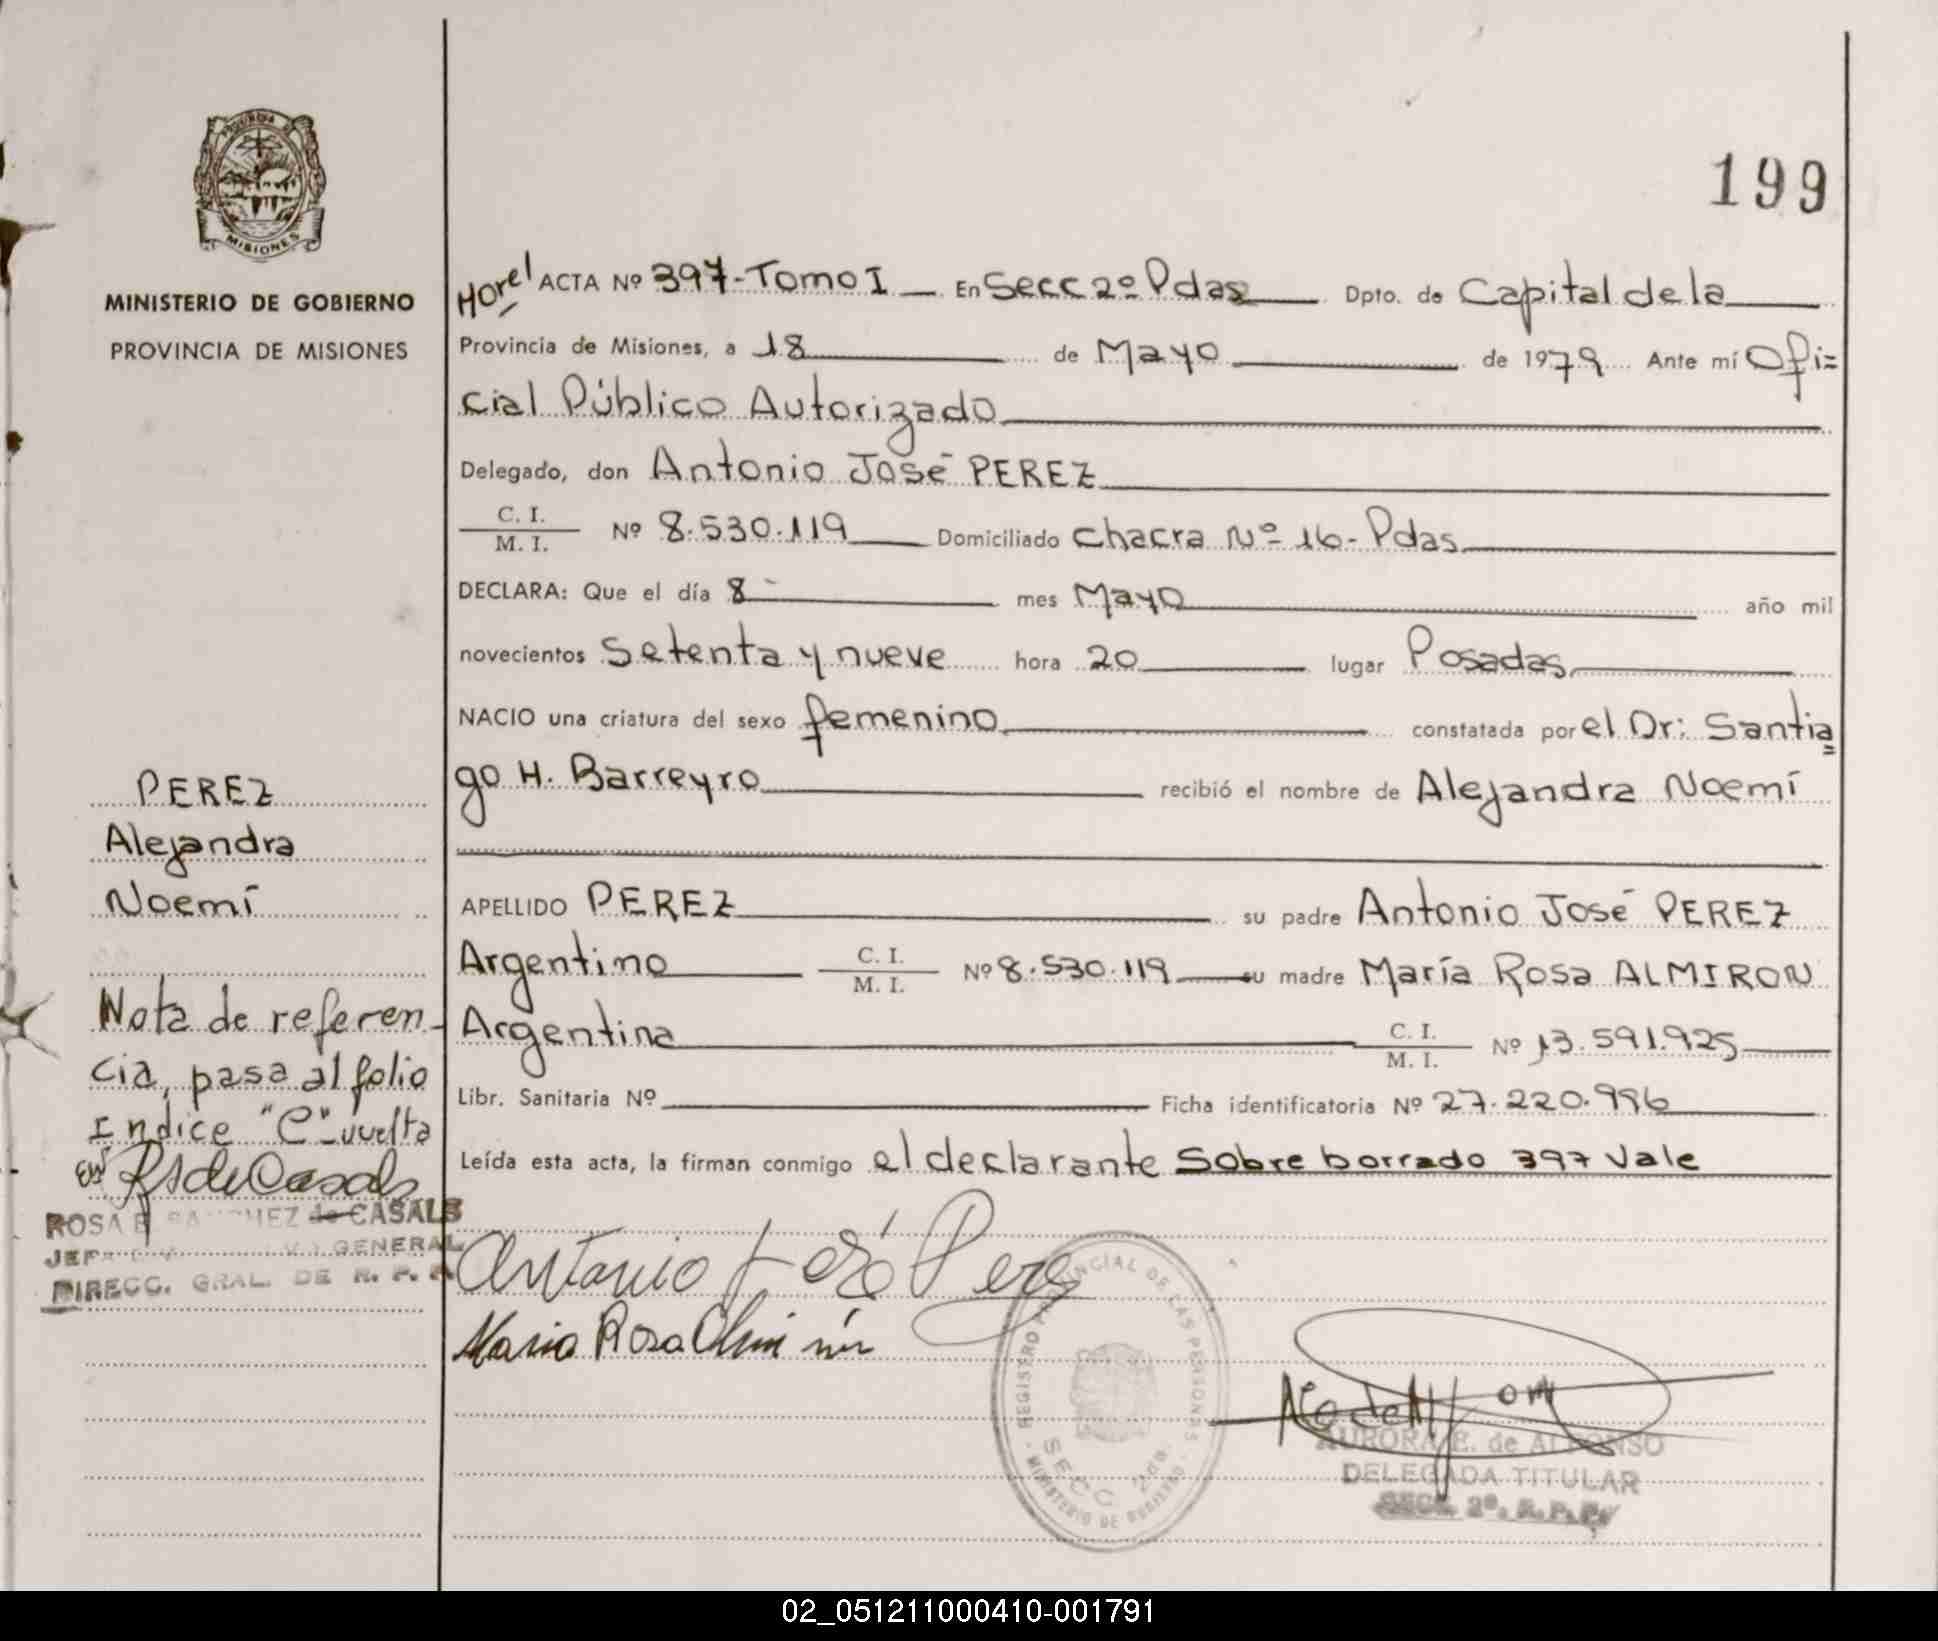 PROVINCIA DE
MISIONES
MINISTERIO DE GOBIERNO
PROVINCIA DE MISIONES
199
ACTA Nº 397-Tomo I En Secc 2º Pdas Dpto. de Capital de la
Provincia de Misiones, a 18 de Mayo de 1979 Ante mí Ofi=
cial Público Autorizado
Delegado, don Antonio José PEREZ
C. I.
M. I. Nº 8.530.119 Domiciliado Chacra Nº 16-Pdas
DECLARA: Que el día 8 mes Mayo año mil
novecientos setenta y nueve hora 20 lugar Posadas
NACIO una criatura del sexo femenino constatada por el Dr: Santia=
go H. Barreyro recibió el nombre de Alejandra Noemí
APELLIDO PEREZ su padre Antonio José PEREZ
Argentino C. I. M. I. Nº 8.530.119 su madre María Rosa ALMIRON
Argentina C. I. M. I. Nº 13.591.925
Libr. Sanitaria Nº Ficha identificatoria Nº 27.220.996
Leída esta acta, la firman conmigo el declarante Sobre borrado 397 Vale
Antonio José Perez
Maria Rosa Almirón
PEREZ
Alejandra
Noemí
Nota de referen-
cia, pasa al folio
Indice "C" vuelta
RS de Casals
ROSA E. SANCHEZ de CASALS
GENERAL
DIRECC. GRAL. DE R. P. P.
REGISTRO PROVINCIAL DE LAS PERSONAS
SECC 2da.
MINISTERIO DE GOBIERNO
AURORA E. de ALFONSO
DELEGADA TITULAR
SECC. 2º. R.P.P.
02_051211000410-001791